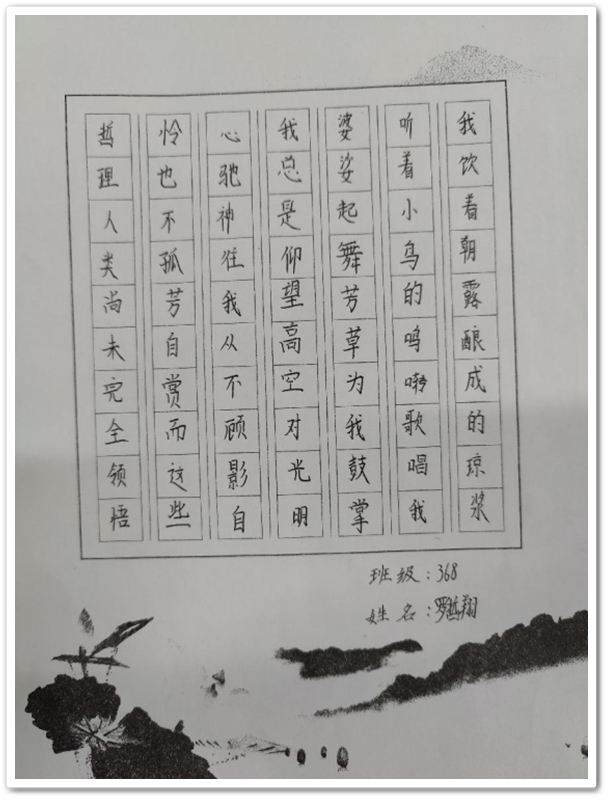 我饮着朝露酿成的琼浆
听着小鸟的鸣啭歌唱我
婆娑起舞芳草为我鼓掌
我总是仰望高空对光明
心驰神往我从不顾影自
怜也不孤芳自赏而这些
哲理人类尚未完全领悟
班级:368
姓名:罗哲翔